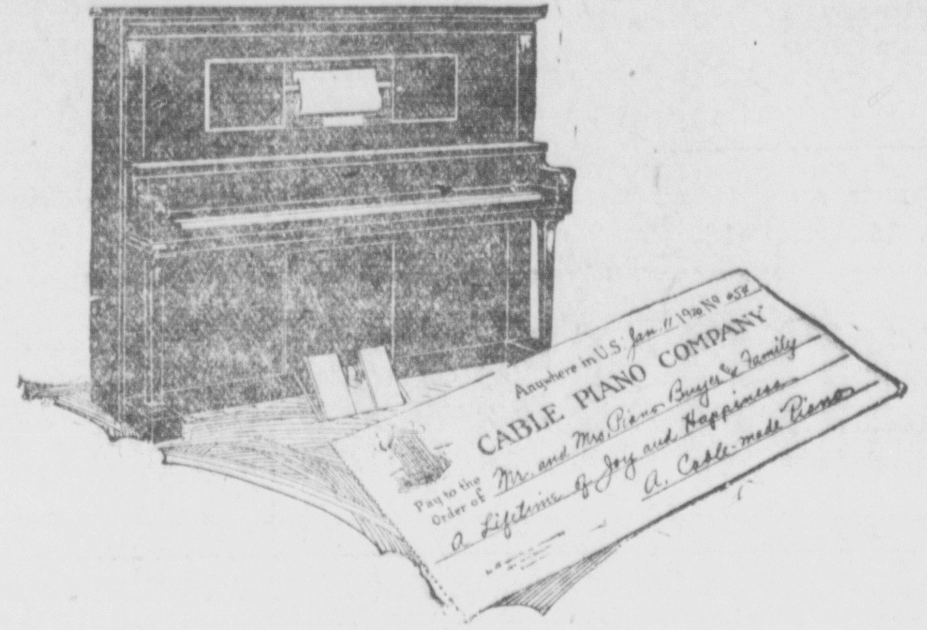 Anywhere in U.S. Jan. 11 1920 No 454
CABLE PIANO COMPANY
Pay to the
Order of Mr. and Mrs. Piano Buyer & Family
A Lifetime of Joy and Happiness
A. Cable-made Piano